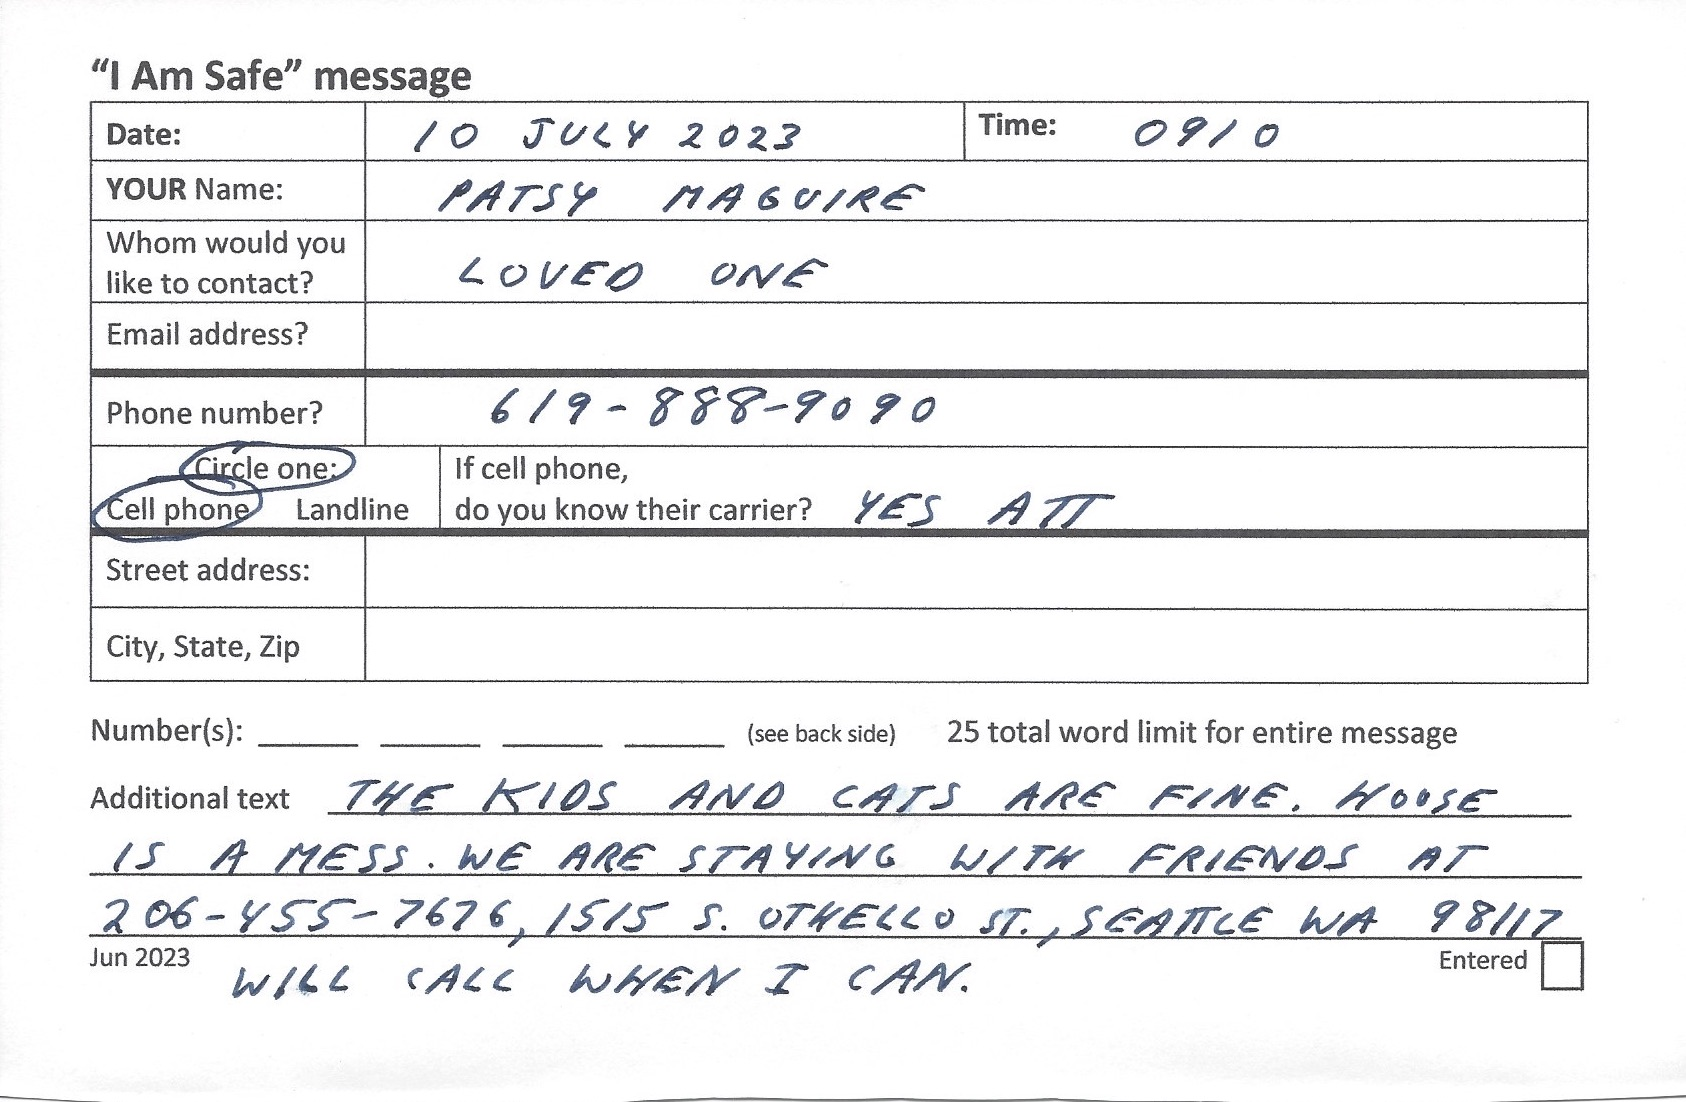 “I Am Safe” message
Date: 10 JULY 2023 Time: 0910
YOUR Name: PATSY MAGUIRE
Whom would you
like to contact? LOVED ONE
Email address?
Phone number? 619-888-9090
Circle one: If cell phone,
Cell phone Landline do you know their carrier? YES ATT
Street address:
City, State, Zip
Number(s): ____ ____ ____ ____ (see back side) 25 total word limit for entire message
Additional text THE KIDS AND CATS ARE FINE. HOUSE
IS A MESS. WE ARE STAYING WITH FRIENDS AT
206-455-7676, 1515 S. OTHELLO ST., SEATTLE WA 98117
Jun 2023 Entered
WILL CALL WHEN I CAN.